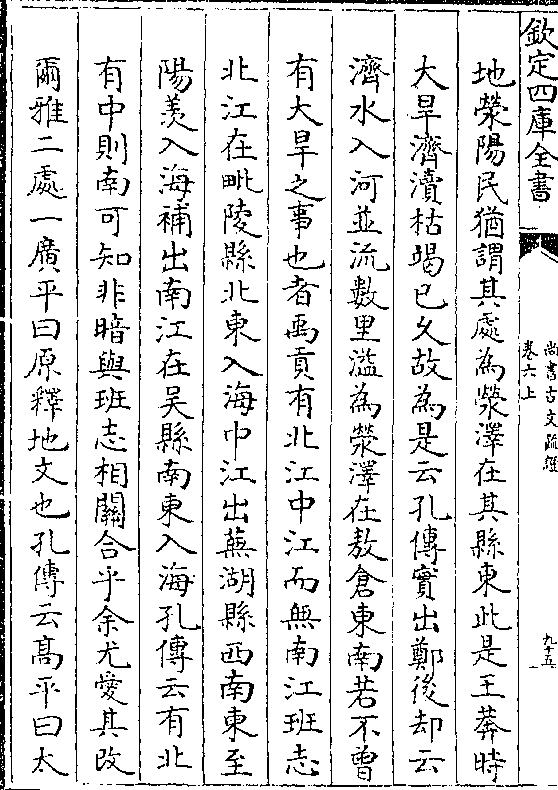 欽定四庫全書
尚書古文疏證
卷六上
九十五
地滎陽民猶謂其處為滎澤在其縣東此是王莽時
大旱濟瀆枯竭已乆故為是云孔傳實出鄭後却云
濟水入河並流數里溢為滎澤在敖倉東南若不曾
有大旱之事也者禹貢有北江中江而無南江班志
北江在毗陵縣北東入海中江出蕪湖縣西南東至
陽羡入海補出南江在吳縣南東入海孔傳云有北
有中則南可知非暗與班志相關合乎余尤愛其改
爾雅二處一廣平曰原釋地文也孔傳云髙平曰太